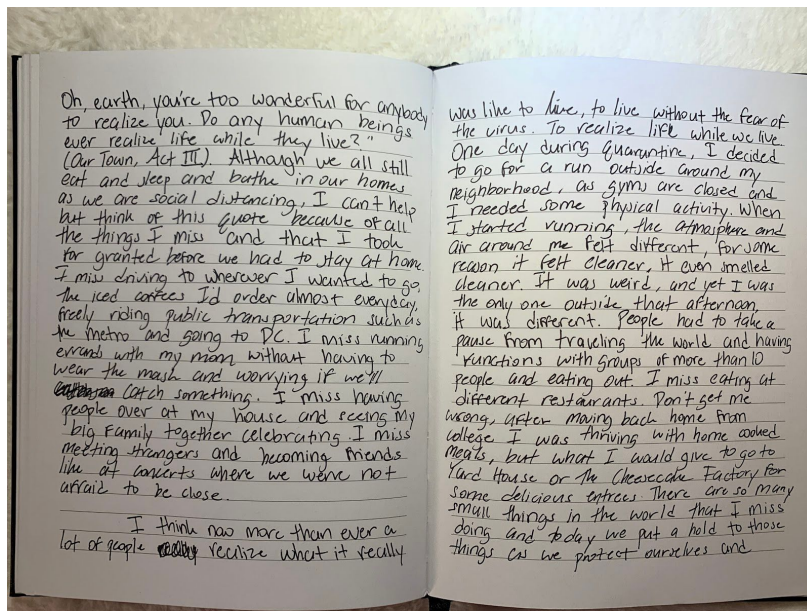 Oh, earth, you're too wonderful for anybody
to realize you. Do any human beings
ever realize life while they live?"
(Our Town, Act III). Although we all still
eat and sleep and bathe in our homes
as we are social distancing, I can't help
but think of this quote because of all
the things I miss and that I took
for granted before we had to stay at home.
I miss driving to wherever I wanted to go,
the iced coffees I'd order almost everyday,
freely riding public transportation such as
the metro and going to DC. I miss running
errands with my mom without having to
wear the mask and worrying if we'll
catch something. I miss having
people over at my house and seeing my
big family together celebrating. I miss
meeting strangers and becoming friends
like at concerts where we were not
afraid to be close.
I think now more than ever a
lot of people realize what it really
was like to live, to live without the fear of
the virus. To realize life while we live.
One day during quarantine, I decided
to go for a run outside around my
neighborhood, as gyms are closed and
I needed some physical activity. When
I started running, the atmosphere and
air around me felt different, for some
reason it felt cleaner, it even smelled
cleaner. It was weird, and yet I was
the only one outside that afternoon,
it was different. People had to take a
pause from traveling the world and having
functions with groups of more than 10
people and eating out. I miss eating at
different restaurants. Don't get me
wrong, after moving back home from
college I was thriving with home cooked
meals, but what I would give to go to
Yard House or the Cheesecake Factory for
some delicious entrees. There are so many
small things in the world that I miss
doing and today we put a hold to those
things as we protect ourselves and